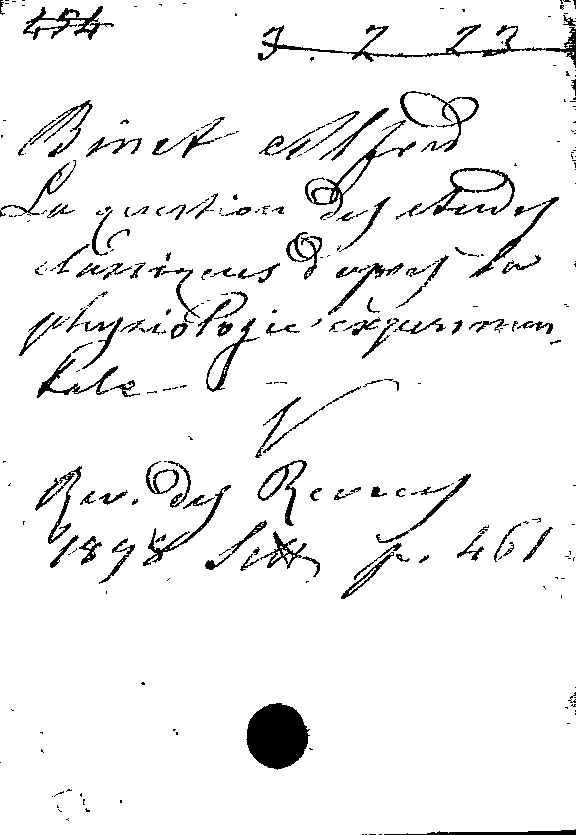 454
3. 2 23
Binet Alfred
La question des etudes
classiques d'apres la
physiologie experimen-
tale
V
Rev. des Revues
1898 Sett. p. 461